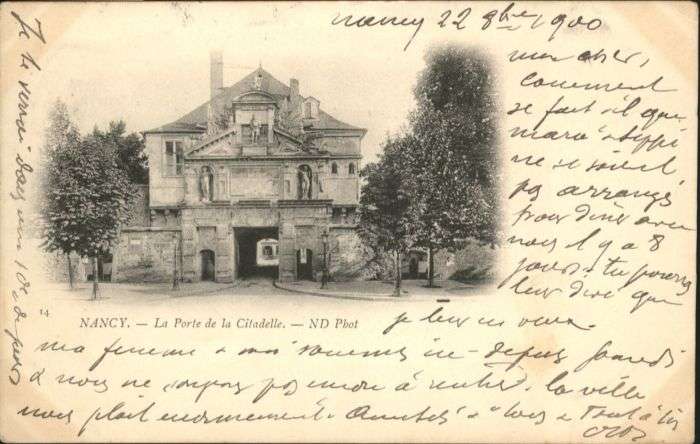 Nancy 22 8bre 1900
mon cher,
comment
se fait-il que
ne se soient
pas arrangés
pour dîner avec
nous il y a 8
jours. tu pourras
leur dire que
je leur en veux.
14
NANCY. — La Porte de la Citadelle. — ND Phot
ma femme & moi sommes ici depuis jeudi
& nous ne songeons pas encore à rentrer. la ville
nous plait énormément. Amitiés à tous & Tout à toi
Je te verrai dans un 10e de jours